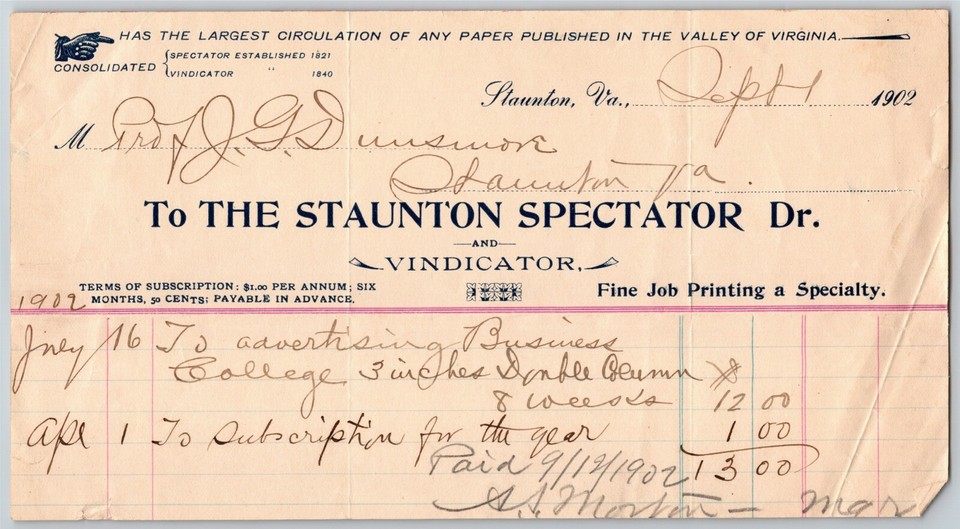 HAS THE LARGEST CIRCULATION OF ANY PAPER PUBLISHED IN THE VALLEY OF VIRGINIA.
CONSOLIDATED { SPECTATOR ESTABLISHED 1821
VINDICATOR " 1840
Staunton, Va., Sept 1 1902
M Prof J. G. Dunsmore
Staunton Va.
To THE STAUNTON SPECTATOR Dr.
AND
VINDICATOR.
TERMS OF SUBSCRIPTION: $1.00 PER ANNUM; SIX
MONTHS, 50 CENTS; PAYABLE IN ADVANCE.
Fine Job Printing a Specialty.
1902
July 16 To advertising Business
College 3 inches Double Column
8 weeks 12 00
Apl 1 To subscription for the year 1 00
Paid 9/12/1902 13 00
Morton - Mgr